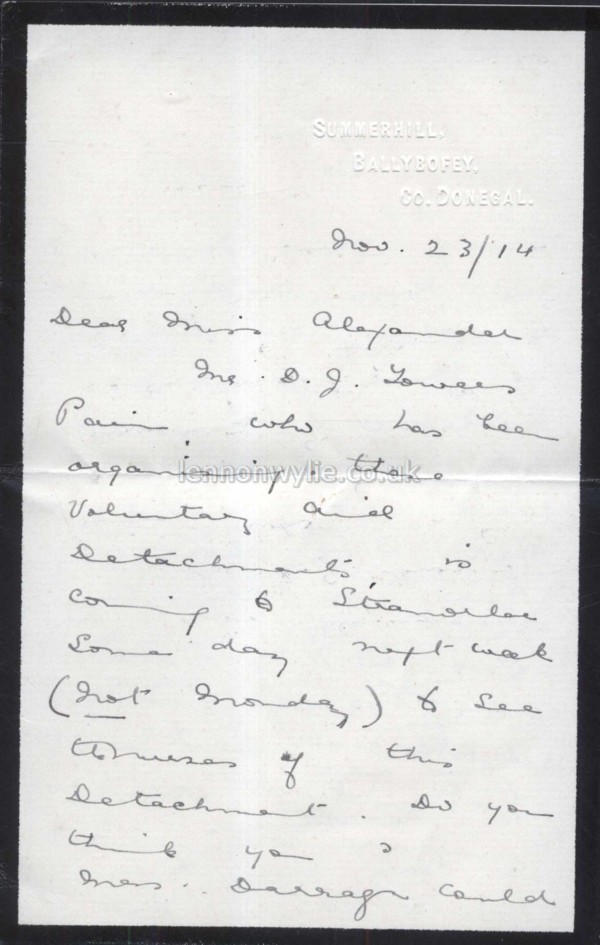 SUMMERHILL,
BALLYBOFEY,
CO. DONEGAL.
Nov. 23/14
Dear Miss Alexander
Mr. D. J. Towers
Pain who has been
organising these
lennonwylie.co.uk
Voluntary Aid
Detachments is
coming to Stranorlar
some day next week
(not Monday) to see
the nurses of this
Detachment. Do you
think you &
Miss Darragh could